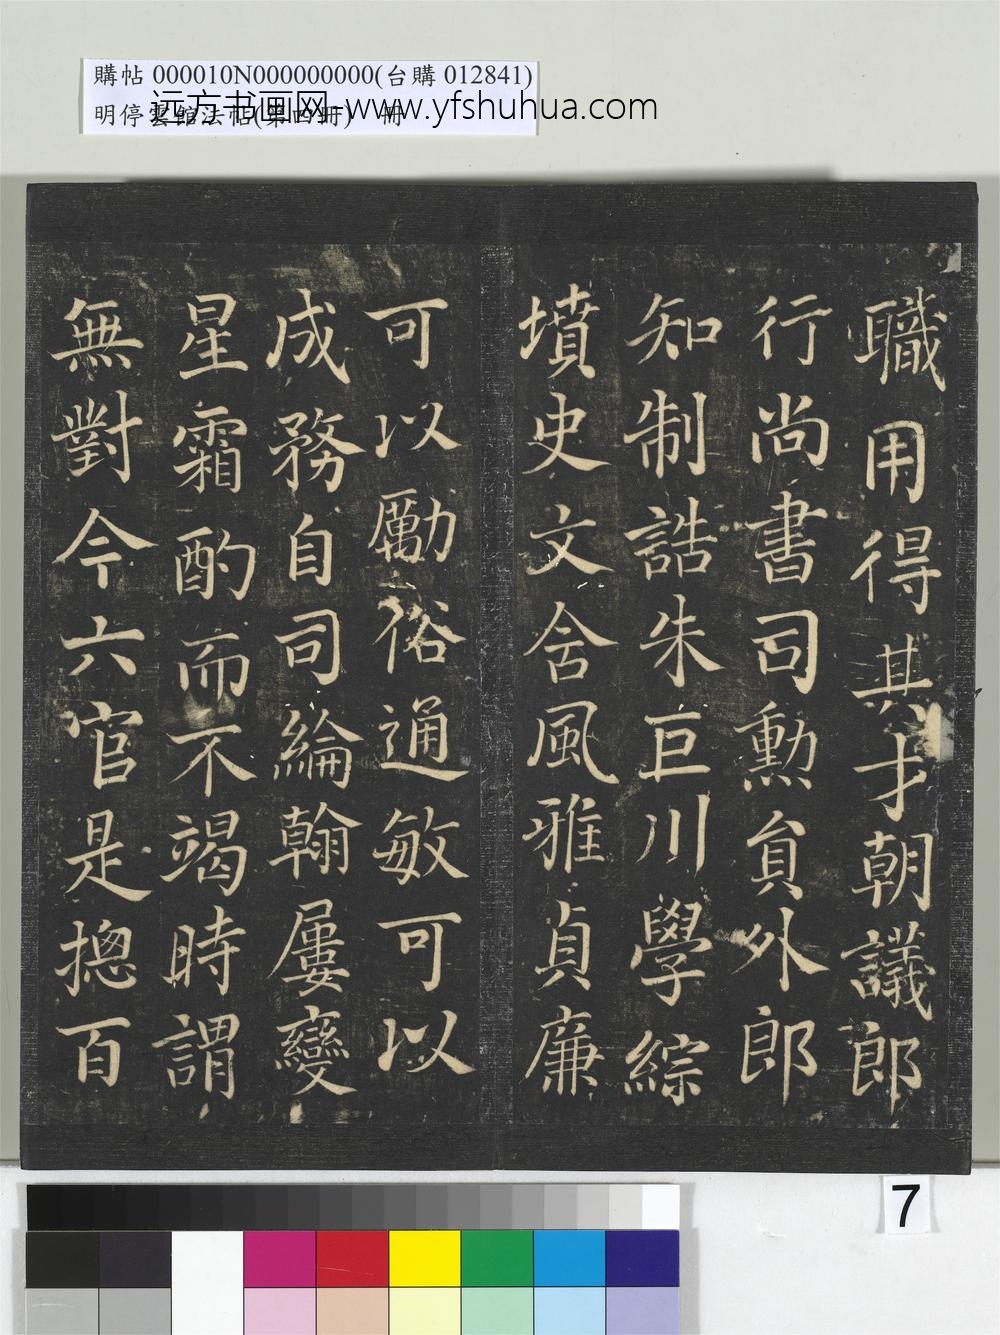 購帖 000010N000000000(台購 012841)
明停雲館法帖(第四冊) 冊
远方书画网-www.yfshuhua.com
職用得其才朝議郎
行尚書司勲負外郎
知制誥朱巨川學綜
墳史文舍風雅貞廉
可以勵俗通敏可以
成務自司綸翰屢變
星霜酌而不竭時謂
無對今六官是摠百
7